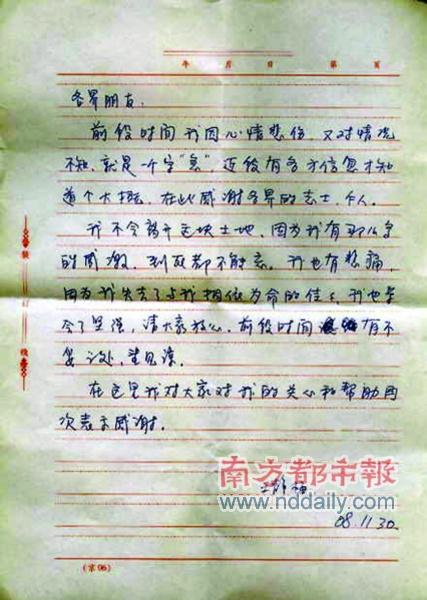 年 月 日 第 页
各界朋友：
前段时间我因心情悲伤，又对情况
不知，就是一个字“急”，还没有各方信息才知
道个大概，在此感谢各界的志士，个人。
我不会离开这块土地，因为我有那么多
的感激，到死都不能忘。我也有悲痛，
因为我失去了与我相依为命的佳
会了坚强，请大家放心，前段时间 有不
妥之处，望见谅。
在这里我对大家对我的关心和帮助再
次表示感谢。
王静梅
08.11.30.
装 订 线
(京06)
南方都市報
www.nddaily.com